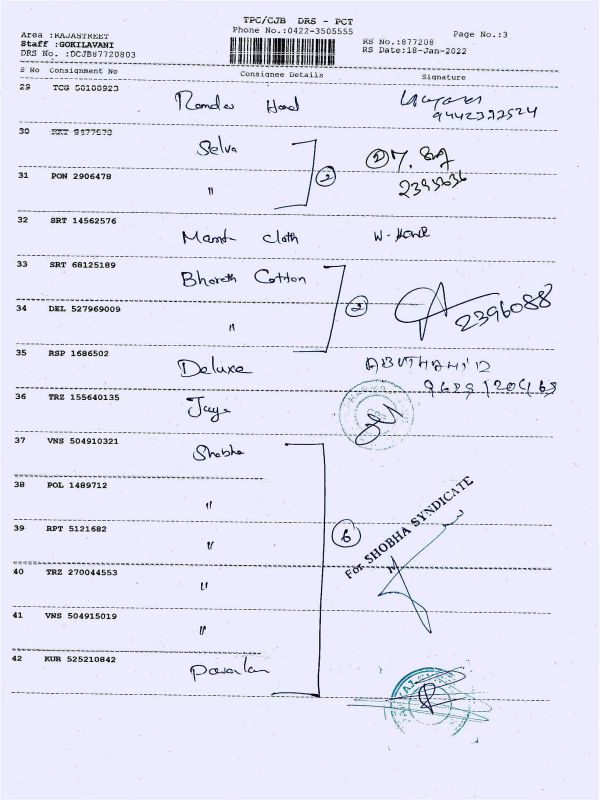 TPC/CJB DRS - PCT
Phone No.:0422-3505555
Page No.:3
Area :RAJASTREET
Staff :GOKILAVANI
DRS No. :DCJB87720803
RS No.:877208
RS Date:18-Jan-2022
S No Consignment No Consignee Details Signature
29 TCG 50100923
9442377524
30
Selva
②
31 PON 2906478
" ②
2393636
32 SRT 14562576
cloth
33 SRT 68125189
Bharath Cotton
34 DEL 527969009
" ②
2396088
35 RSP 1686502
Deluxe
ABUTHAHID
36 TRZ 155640135
Jaya
37 VNS 504910321
Shobha
38 POL 1489712
"
39 RPT 5121682
"
⑥
For SHOBHA SYNDICATE
40 TRZ 270044553
"
41 VNS 504915019
"
42 KUR 525210842